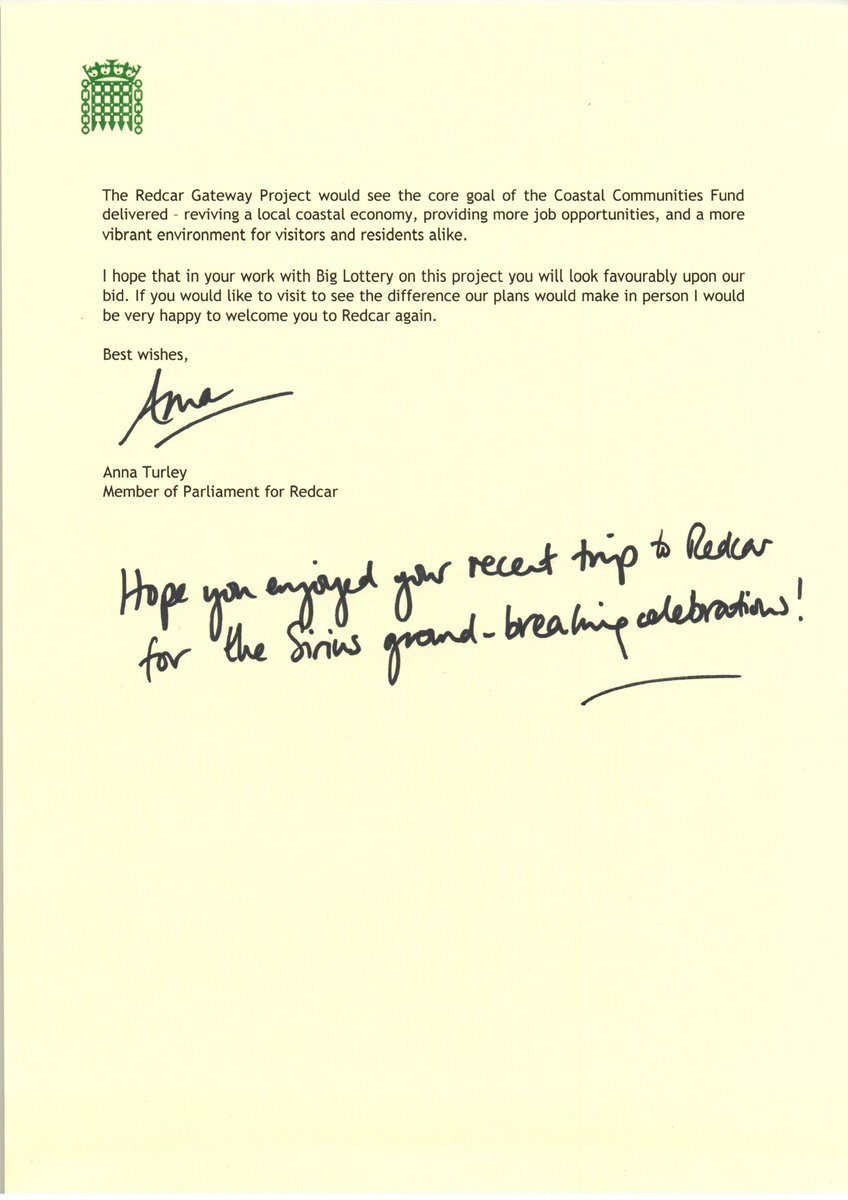 The Redcar Gateway Project would see the core goal of the Coastal Communities Fund
delivered – reviving a local coastal economy, providing more job opportunities, and a more
vibrant environment for visitors and residents alike.
I hope that in your work with Big Lottery on this project you will look favourably upon our
bid. If you would like to visit to see the difference our plans would make in person I would
be very happy to welcome you to Redcar again.
Best wishes,
Anna
Anna Turley
Member of Parliament for Redcar
Hope you enjoyed your recent trip to Redcar
for the Sirius ground-breaking celebrations!